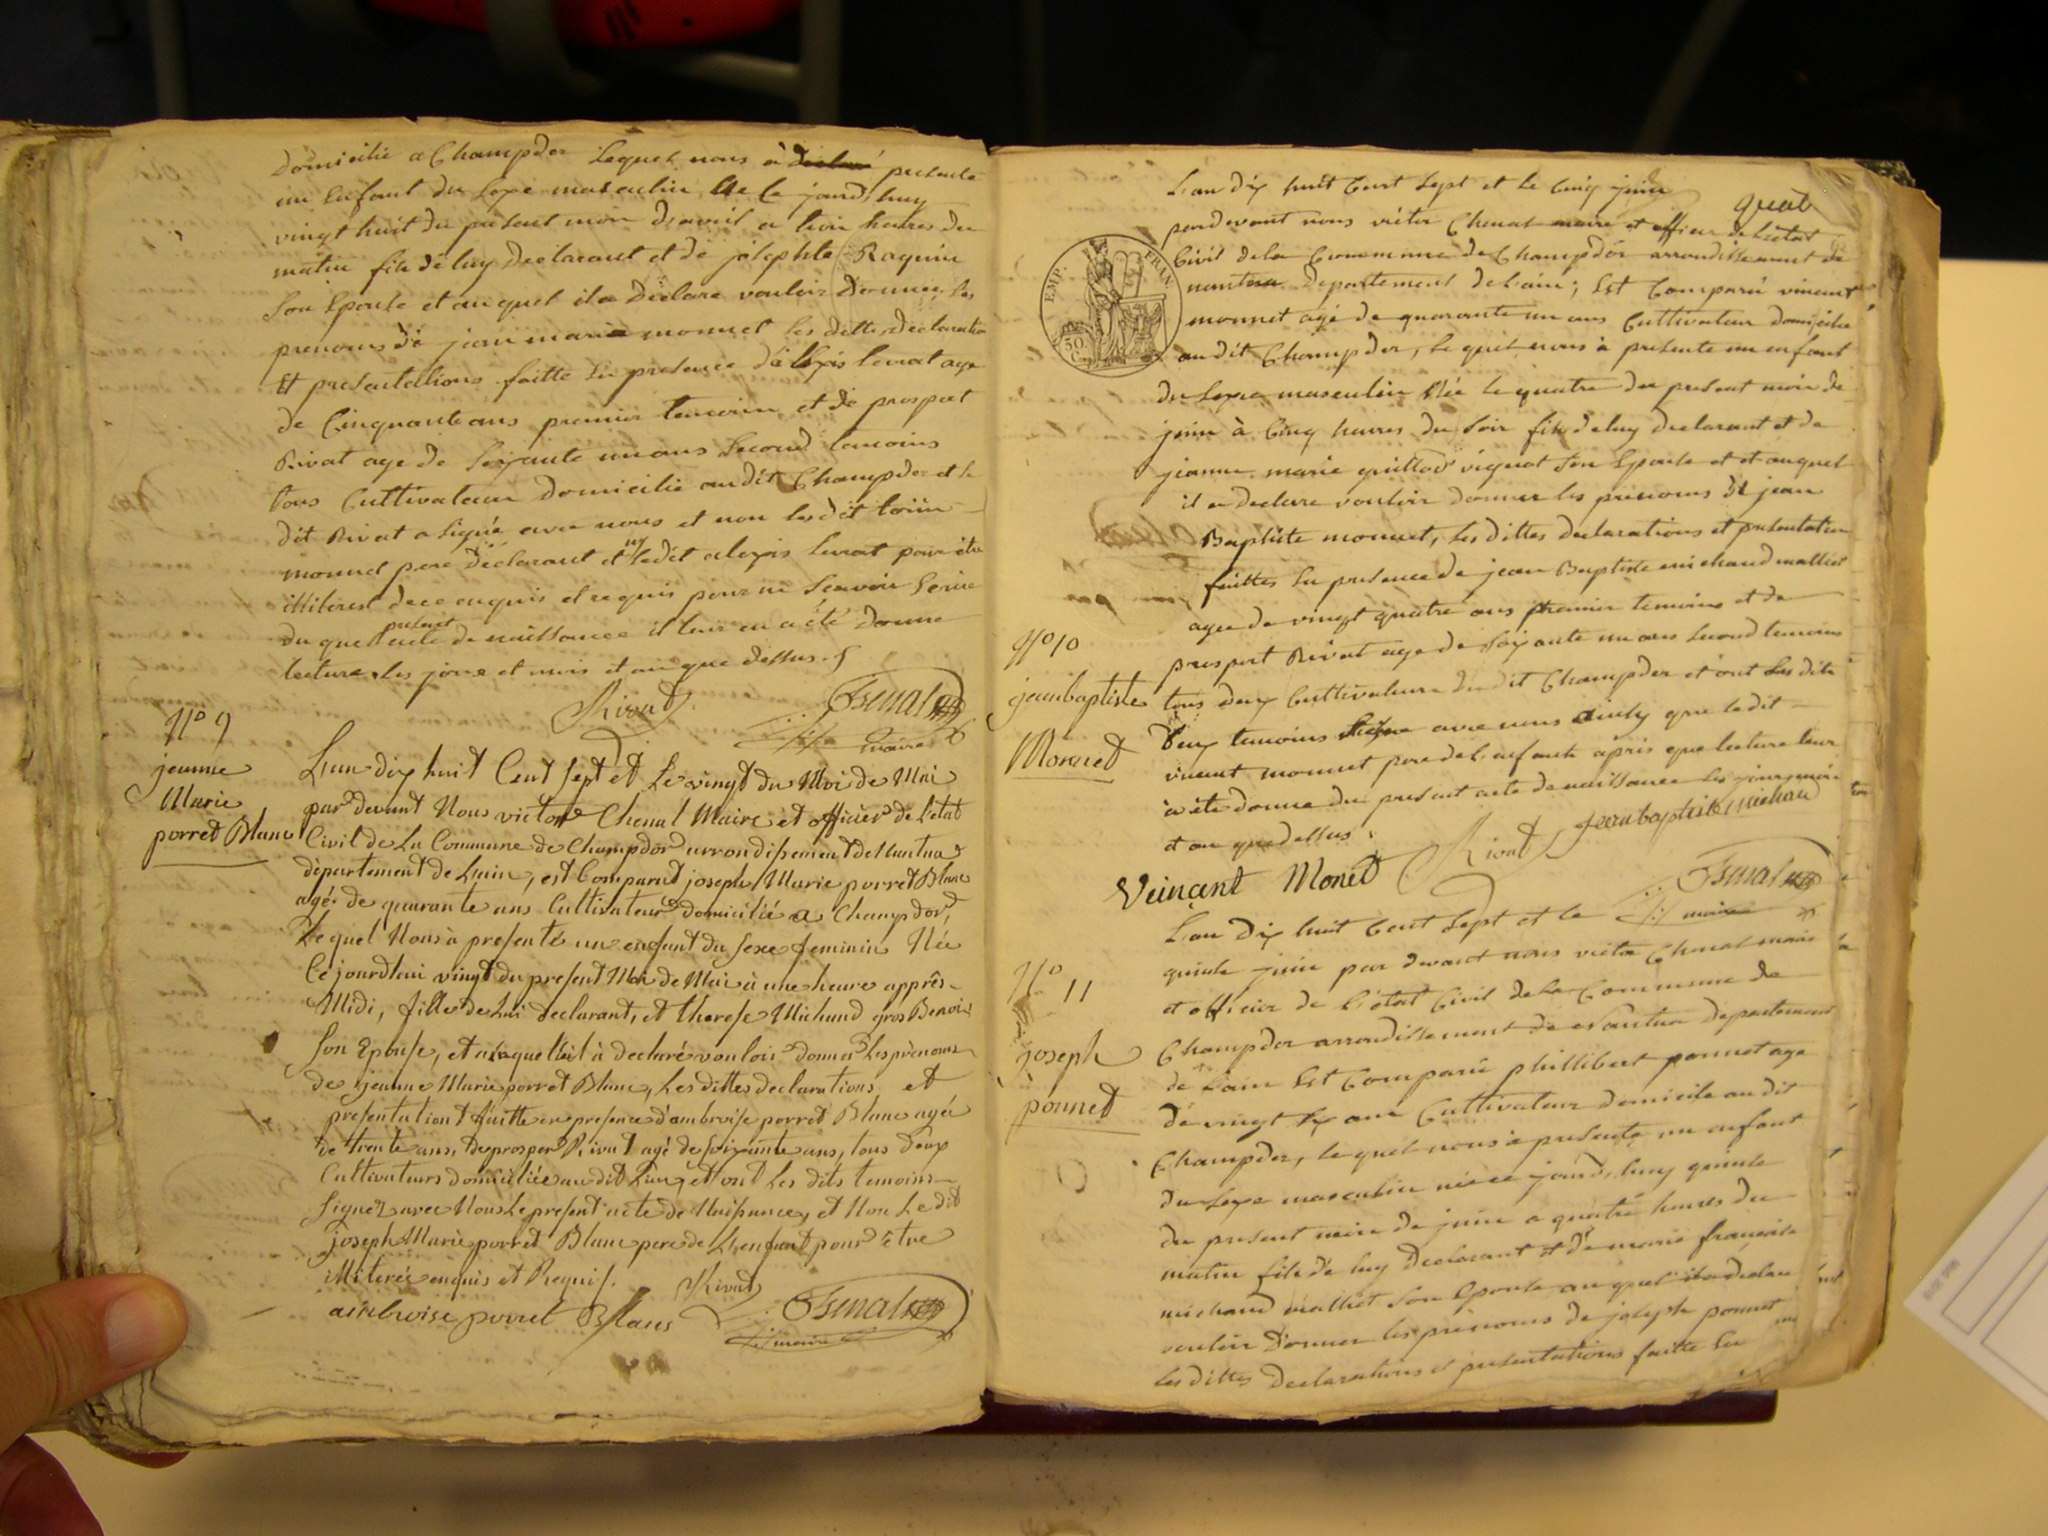 domicilié a Champdor Lequel nous à declaré presenté
un Enfant du sexe masculin Né Ce jourd'huy
vingt huit du present mois d'avril a trois heures du
matin fils de luy declarant et de josephte Raquin
Son Epouse et auquel il a déclare vouloir Donner les
prenoms de jean marie monnet les dittes declaration
Et presentations faitte En presence de alexis levrat age
de Cinquante ans premier temoin et de prospert
Rivat age de soixante un ans second temoins
tous Cultivateur domicilié au dit Champdor et le
dit Rivat a signé avec nous et non les dit
monnet pere déclarant et ny ledit alexis levrat pour être
illiteres de ce enquis et requis pour ne scavoir Ecrire
du quel present acte de naissance il leur en a été donné
lecture les jour et mois et an que dessus
Rivat
maire
No 9
jeanne
Marie
porret Blanc
L'an dix huit Cent sept et Le vingt du Moi de Mai
par devant Nous victor Chenal Maire et officier de l'etat
Civil de La Commune de Champdor arrondissement de Nantua
departement de L'ain, est Comparut joseph Marie porret Blanc
agé de quarante ans Cultivateur domicilié a Champdor,
Lequel Nous à presenté un enfant du sexe feminin Née
Ce jourdhui vingt du present Moi de Mai à une heure apprês
Midi, fille de Lui declarant, et therese Michaud gros Benoi
Son Epouse, et a laquelle il à declaré vouloir donner Les prénoms
de jeanne Marie porret Blanc, Les dittes declarations et
presentationt faitte en presence d'ambroise porret Blanc agée
de trente ans, De prosper Rivat agé de soixante ans, tous deux
Cultivateurs domiciliées au dit Lieu, et ont Les dits temoins
Signez avec Nous Le present acte de Naissance, et Non Le dit
joseph Marie porret Blanc pere de L'enfant pour être
illiterée enquis et Requis.
Rivat
ambroise porret Blanc
maire
quat
EMP. FRAN.
50
C.
L'an dix huit Cent Sept et le Cinq juin
pardevant nous victor Chenal maire et officier de L'etat
Civil de la Commune de Champdor arrondissement de
nantua Departement de L'ain; Est Comparu vincent
monnet agé de quarante un ans Cultivateur domicilie
au dit Champdor, lequel nous à presente un enfant
du sexe masculin Née le quatre du present mois de
juin à Cinq heures du soir fils de luy declarant et de
jeanne marie guillot vignat son Epouse et et auquel
il a declare vouloir donner les prenoms de jean
Baptiste monnet, les dittes declarations et presentation
faittes En presence de jean Baptiste michaud malliet
agee de vingt quatre ans premier temoins et de
prospert Rivat age de soixante un ans second temoins
tous deux Cultivateurs du dit Champdor et ont les dits
deux temoins signe avec nous ainsy que ledit
vincent monnet pere de l'enfant après que lecture leur
à été donne du present acte de naissance les jour mois
et an que dessus
No 10
jeanbaptiste
Monnet
Rivat
jeanbaptiste michau
Veinçent Monet
maire
No 11
joseph
ponnet
L'an dix huit Cent Sept et le
quinze juin par devant nous victor Chenal maire
et officier de L'état Civil de la Commune de
Champdor arrondissement de Nantua departement
de L'ain Est Comparu phillibert ponnet age
de vingt six ans Cultivateur domicile au dit
Champdor, lequel nous à presente un enfant
du sexe masculin née ce jourd'huy quinze
du present mois de juin a quatre heures du
matin fils de luy declarant et de marie françoise
michaud malliet son Epouse auquel il a declare
vouloir donner les prenoms de joseph ponnet
les dittes declarations et presentations faitte En